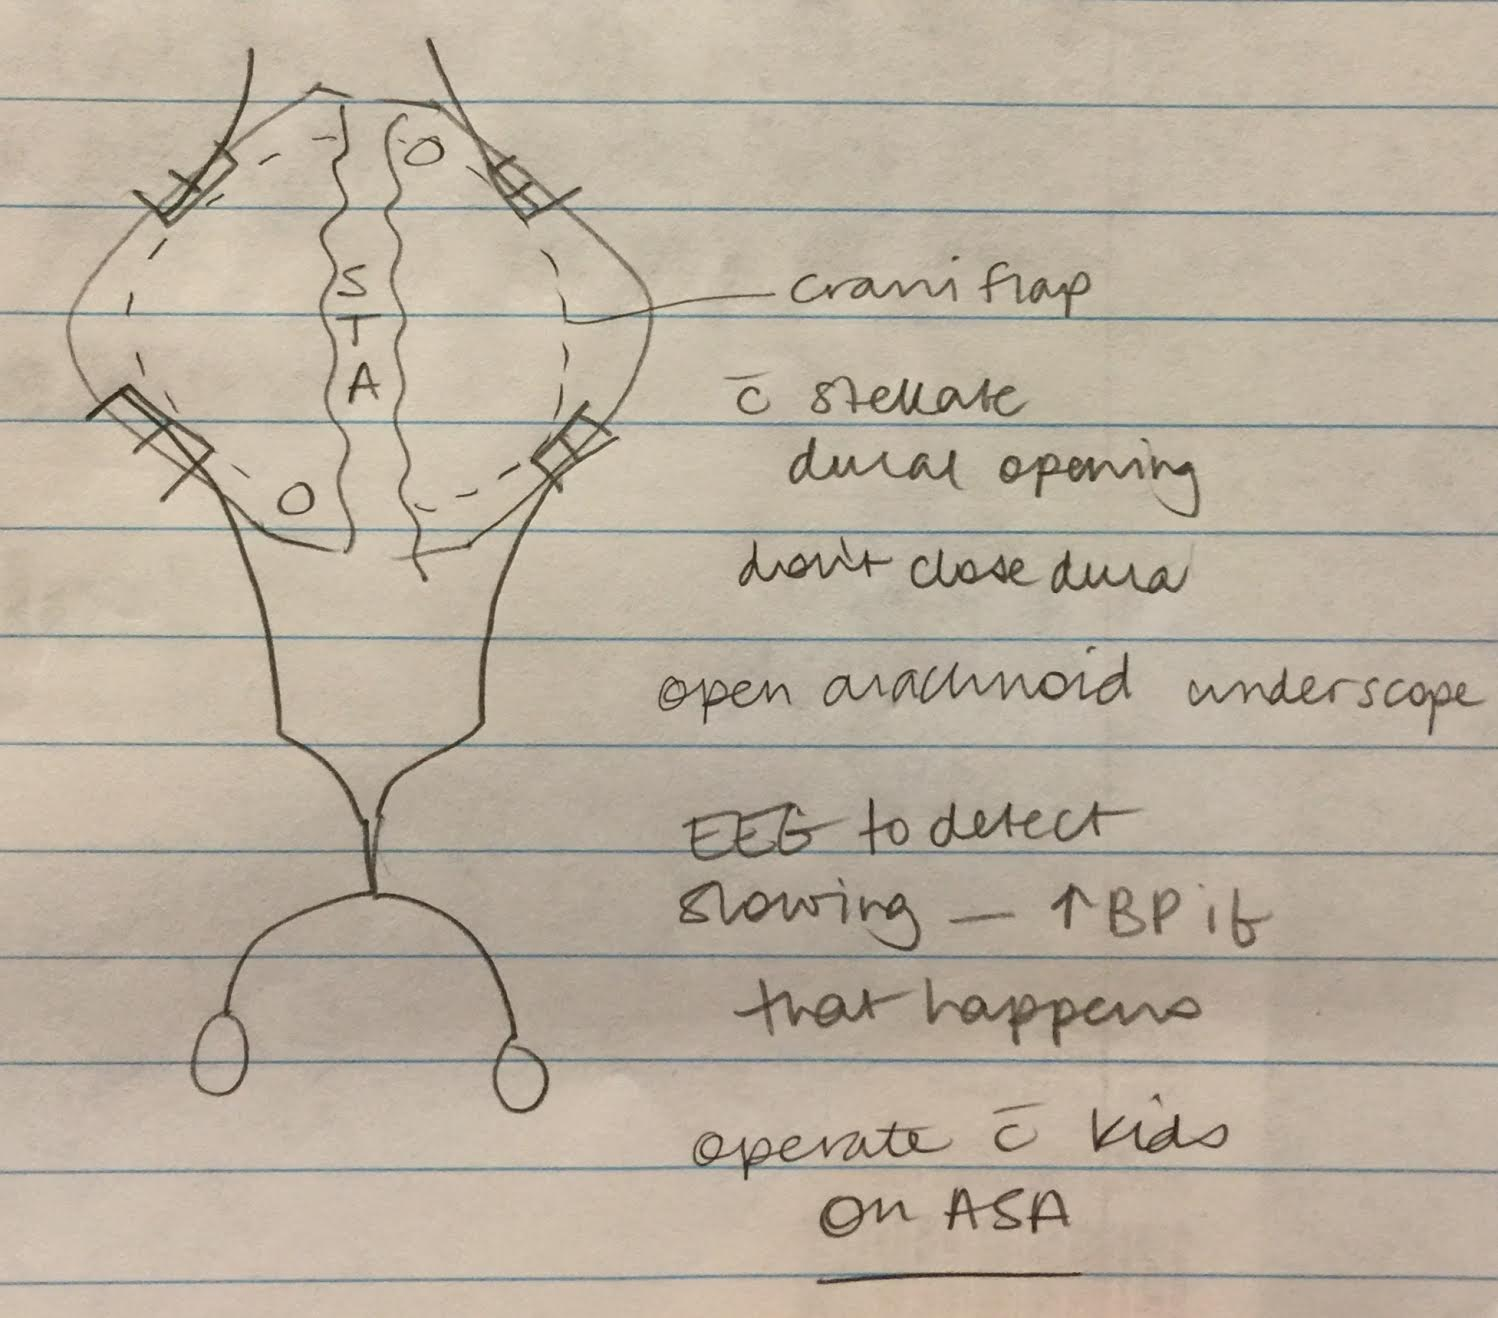 S
T
A
crani flap
c̄ stellate
dural opening
don't close dura
open arachnoid under scope
EEG to detect
slowing — ↑BP if
that happens
operate c̄ kids
on ASA